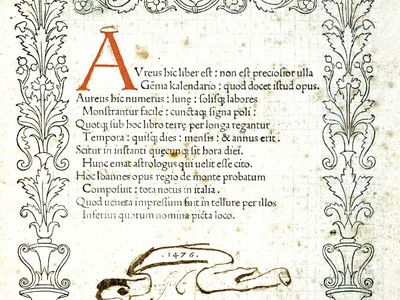 AVreus hic liber est: non est preciosior ulla
Gēma kalendario: quod docet istud opus.
Aureus hic numerus: lune: solisq; labores
Monstrantur facile: cunctaq; signa poli:
Quotq; sub hoc libro terre per longa regantur
Tempora: quisq; dies: mensis: & annus erit.
Scitur in instanti quecunq; sit hora diei.
Hunc emat astrologus qui uelit esse cito.
Hoc Ioannes opus regio de monte probatum
Composuit: tota notus in italia.
Quod ueneta impressum fuit in tellure per illos
Inferius quorum nomina picta loco.
.1476.